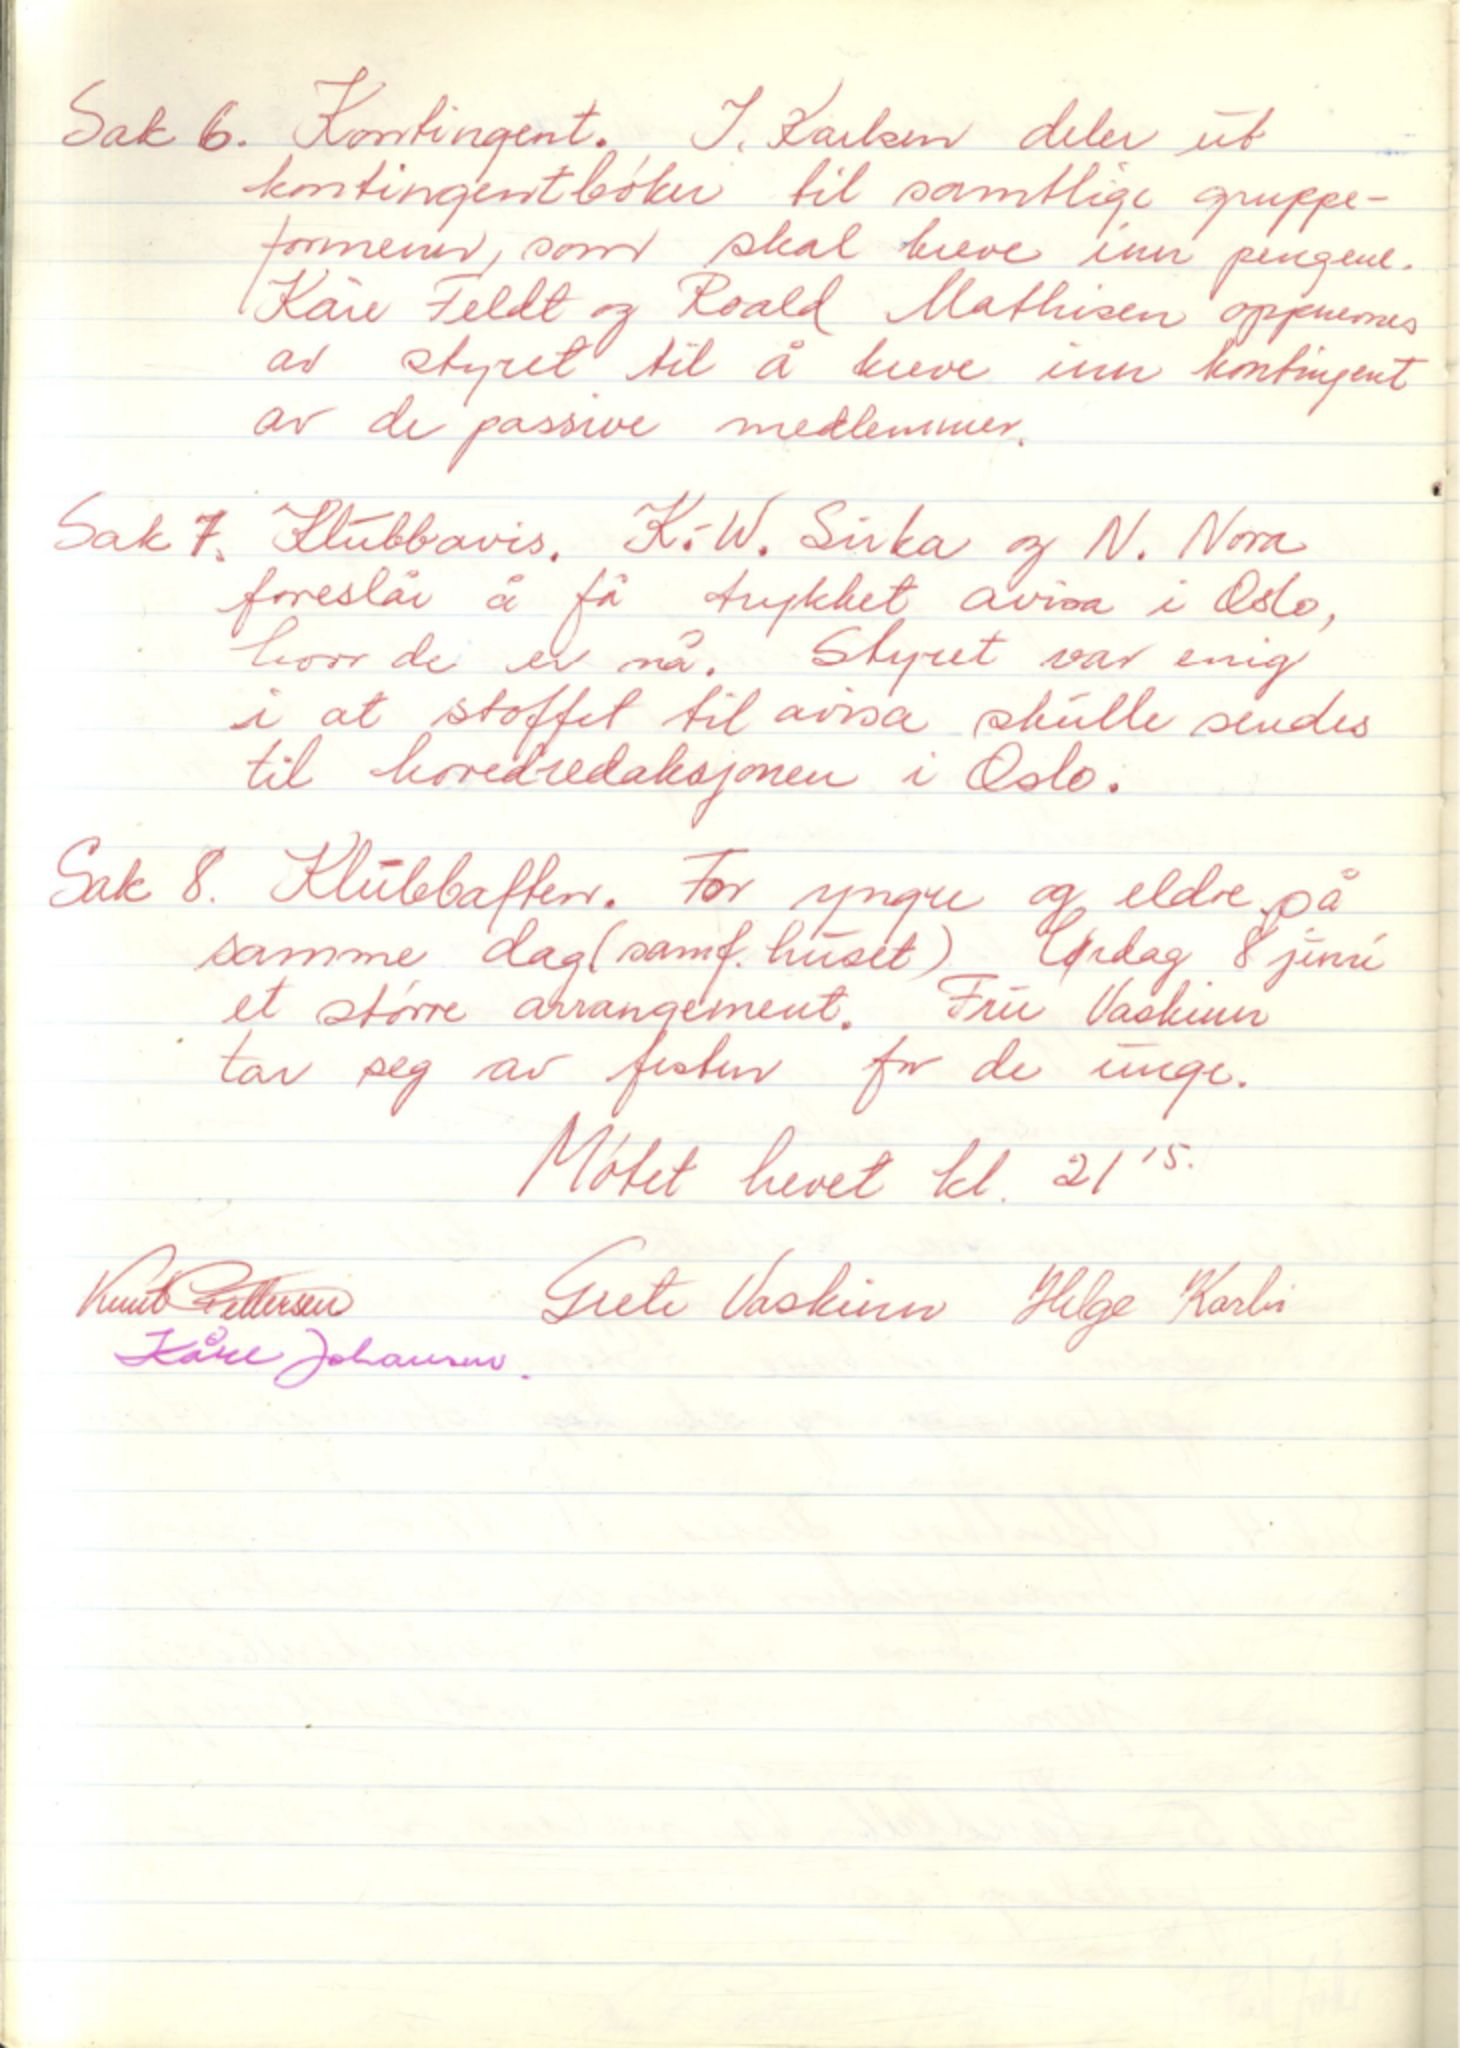 Sak 6. Kontingent. I. Karlsen deler ut
kontingentbøker til samtlige gruppe-
formenn, som skal kreve inn pengene.
Kåre Feldt og Roald Mathisen oppnevnes
av styret til å kreve inn kontingent
av de passive medlemmer.
Sak 7. Klubbavis. K.-W. Sirka og N. Nora
foreslår å få trykket avisa i Oslo,
hvor de er nå. Styret var enig
i at stoffet til avisa skulle sendes
til hovedredaksjonen i Oslo.
Sak 8. Klubbaften. For yngre og eldre på
samme dag (samf. huset) Lørdag 8 juni
et større arrangement. Fru Vaskinn
tar seg av festen for de unge.
Møtet hevet kl. 21 15.
Knut Pettersen Grete Vaskinn Helge
Kåre Johansen.